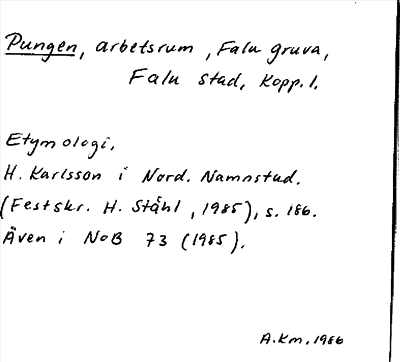 Pungen, arbetsrum, Falu gruva,
Falu stad, Kopp. l.
Etymologi.
H. Karlsson i Nord. Namnstud.
(Festskr. H. Ståhl, 1985), s. 186.
Även i NoB 73 (1985).
A.Km. 1986